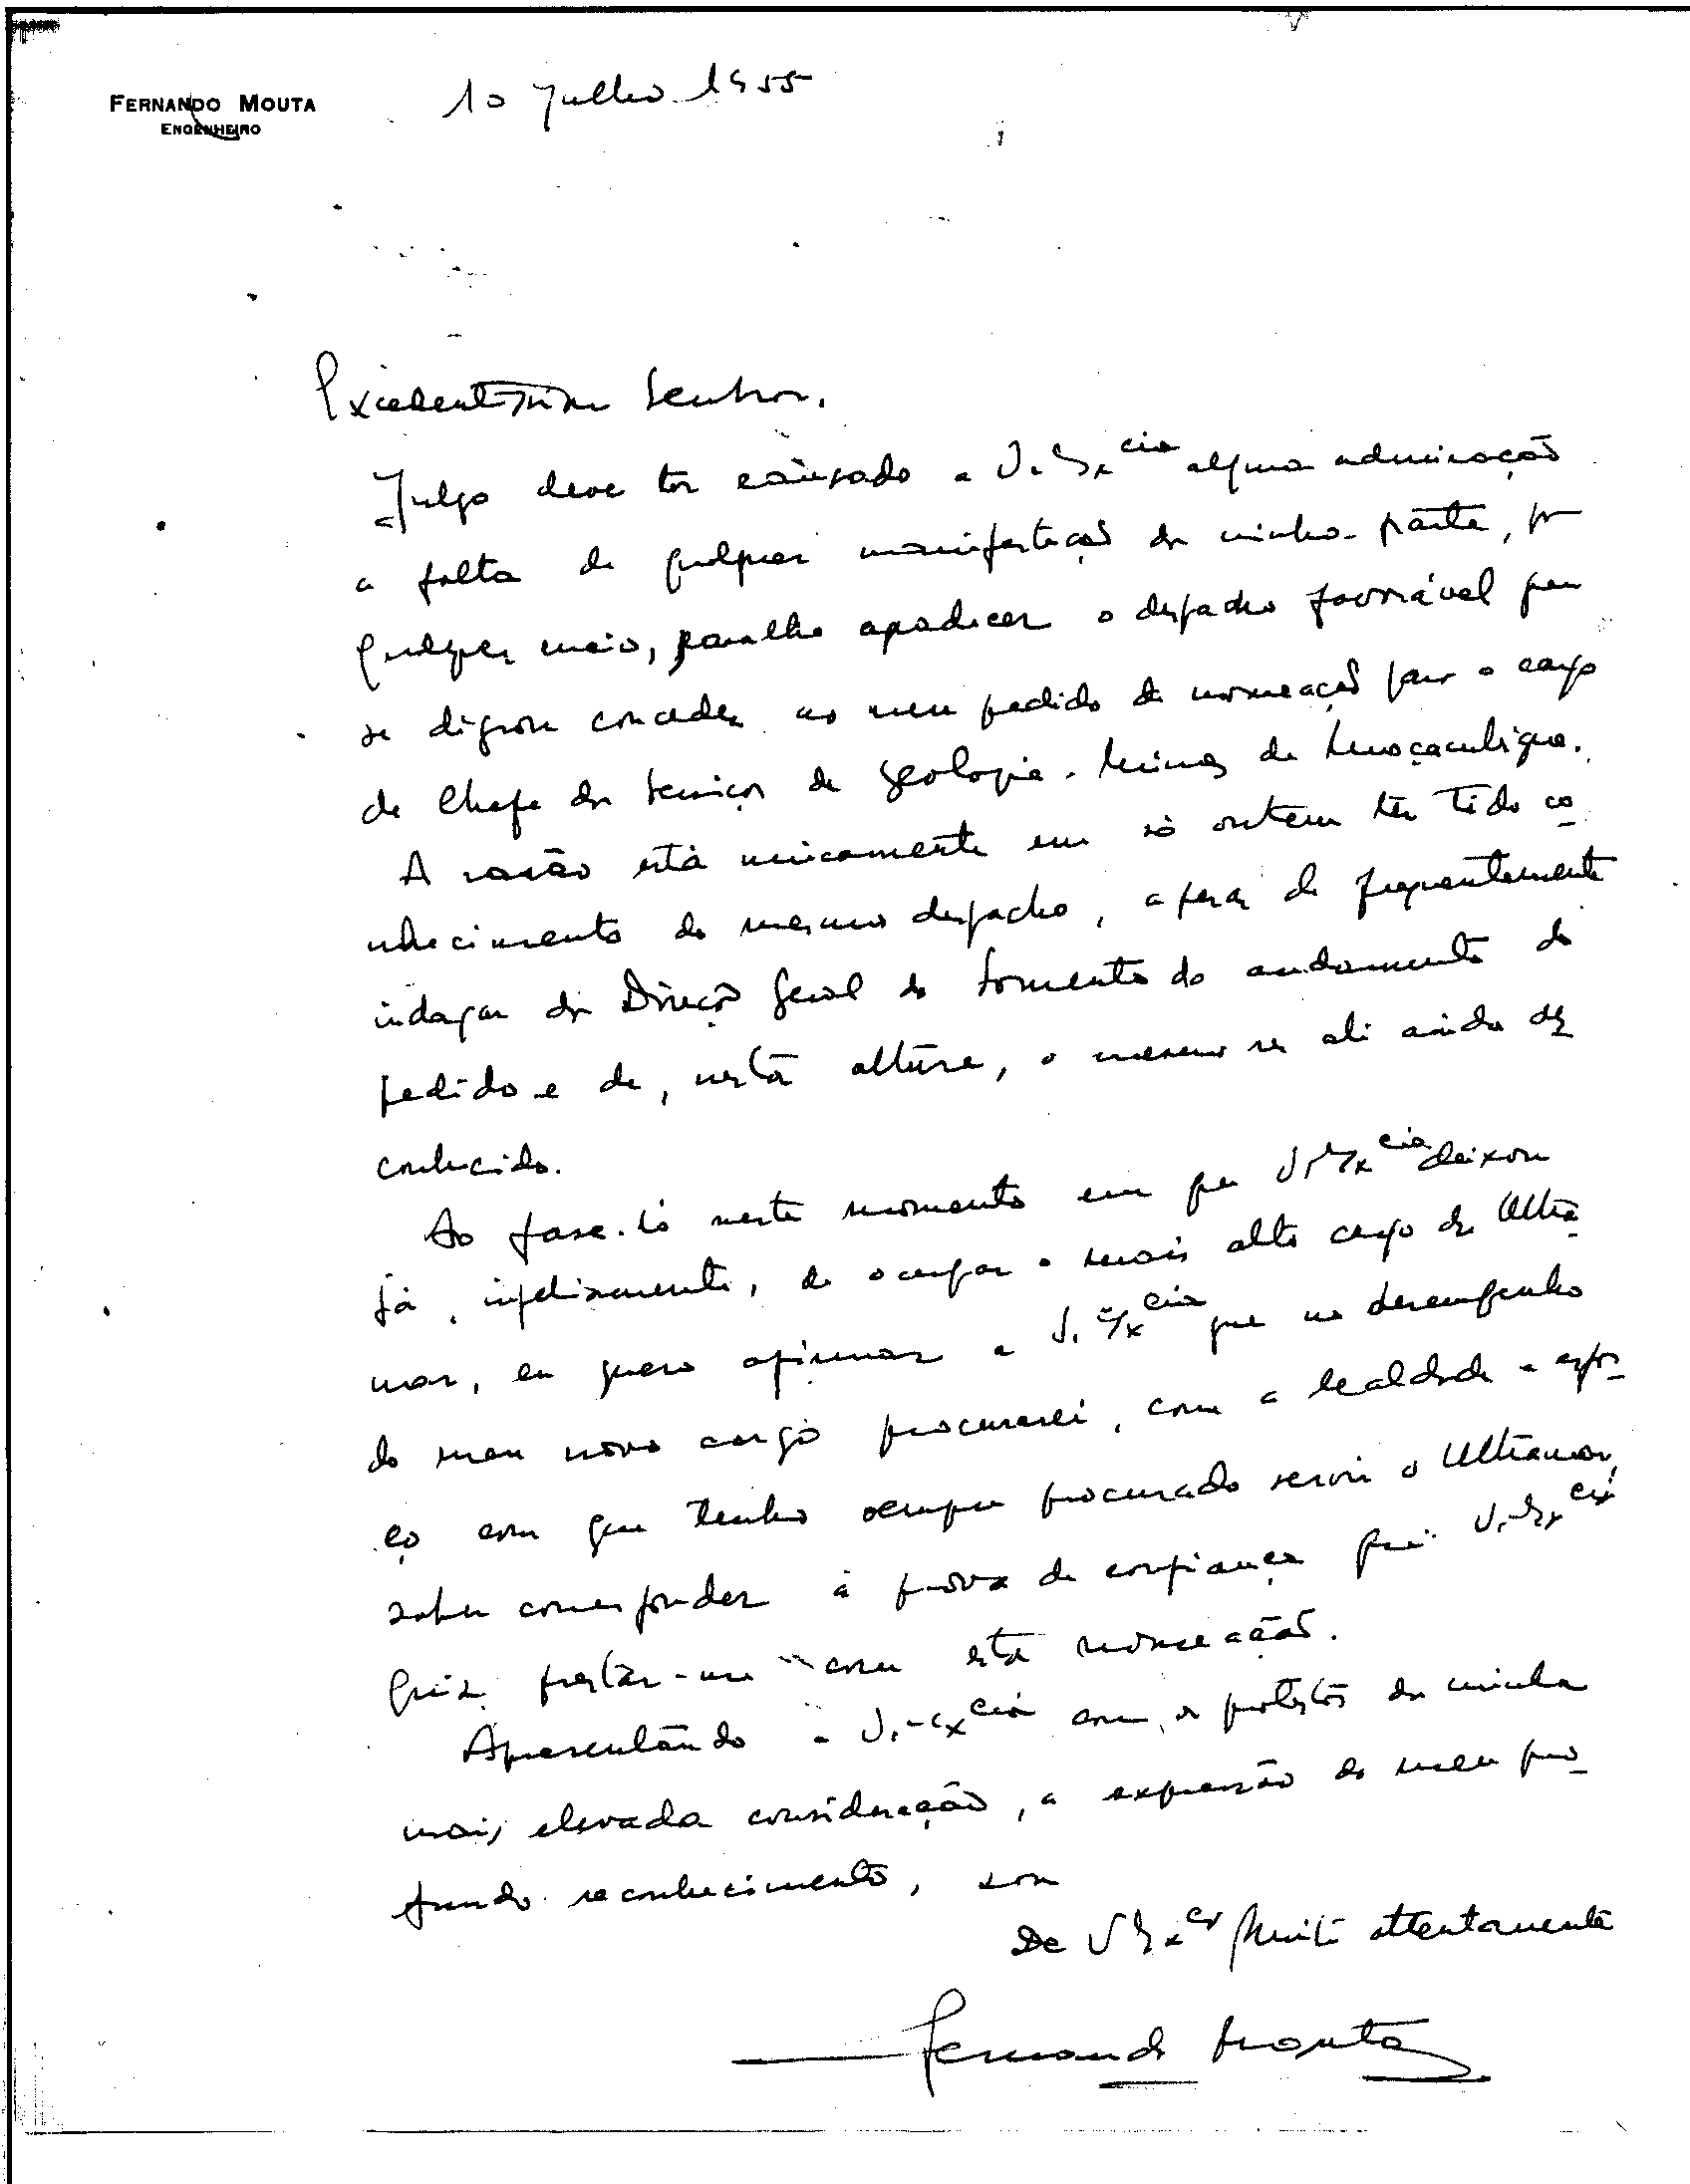 FERNANDO MOUTA
ENGENHEIRO
10 Julho 1955
Excelentíssimo Senhor.
Julgo deve ter causado a V. Ex.cia alguma admiração
a falta de qualquer manifestação da minha parte, por
qualquer meio, para lhe agradecer o despacho favorável que
se dignou conceder ao meu pedido de nomeação para o cargo
de Chefe dos Serviços de Geologia e Minas de Moçambique.
A razão está unicamente em só ontem ter tido co
nhecimento do mesmo despacho, apesar de frequentemente
indagar da Direcção Geral do Fomento do andamento do
pedido e de, nesta altura, o mesmo ser ali ainda des
conhecido.
Ao fazê-lo neste momento em que V. Ex.cia deixou
já, infelizmente, de ocupar o mais alto cargo do Ultra
mar, eu quero afirmar a V. Ex.cia que no desempenho
do meu novo cargo procurarei, com a lealdade e esfor-
ço com que tenho sempre procurado servir o Ultramar,
saber corresponder à prova de confiança que V. Ex.cia
quiz prestar-me com esta nomeação.
Apresentando a V. Ex.cia com os protestos da minha
mais elevada consideração, a expressão do meu pro
fundo reconhecimento, sou
De V Ex.cia Muito attentamente
Fernando Mouta